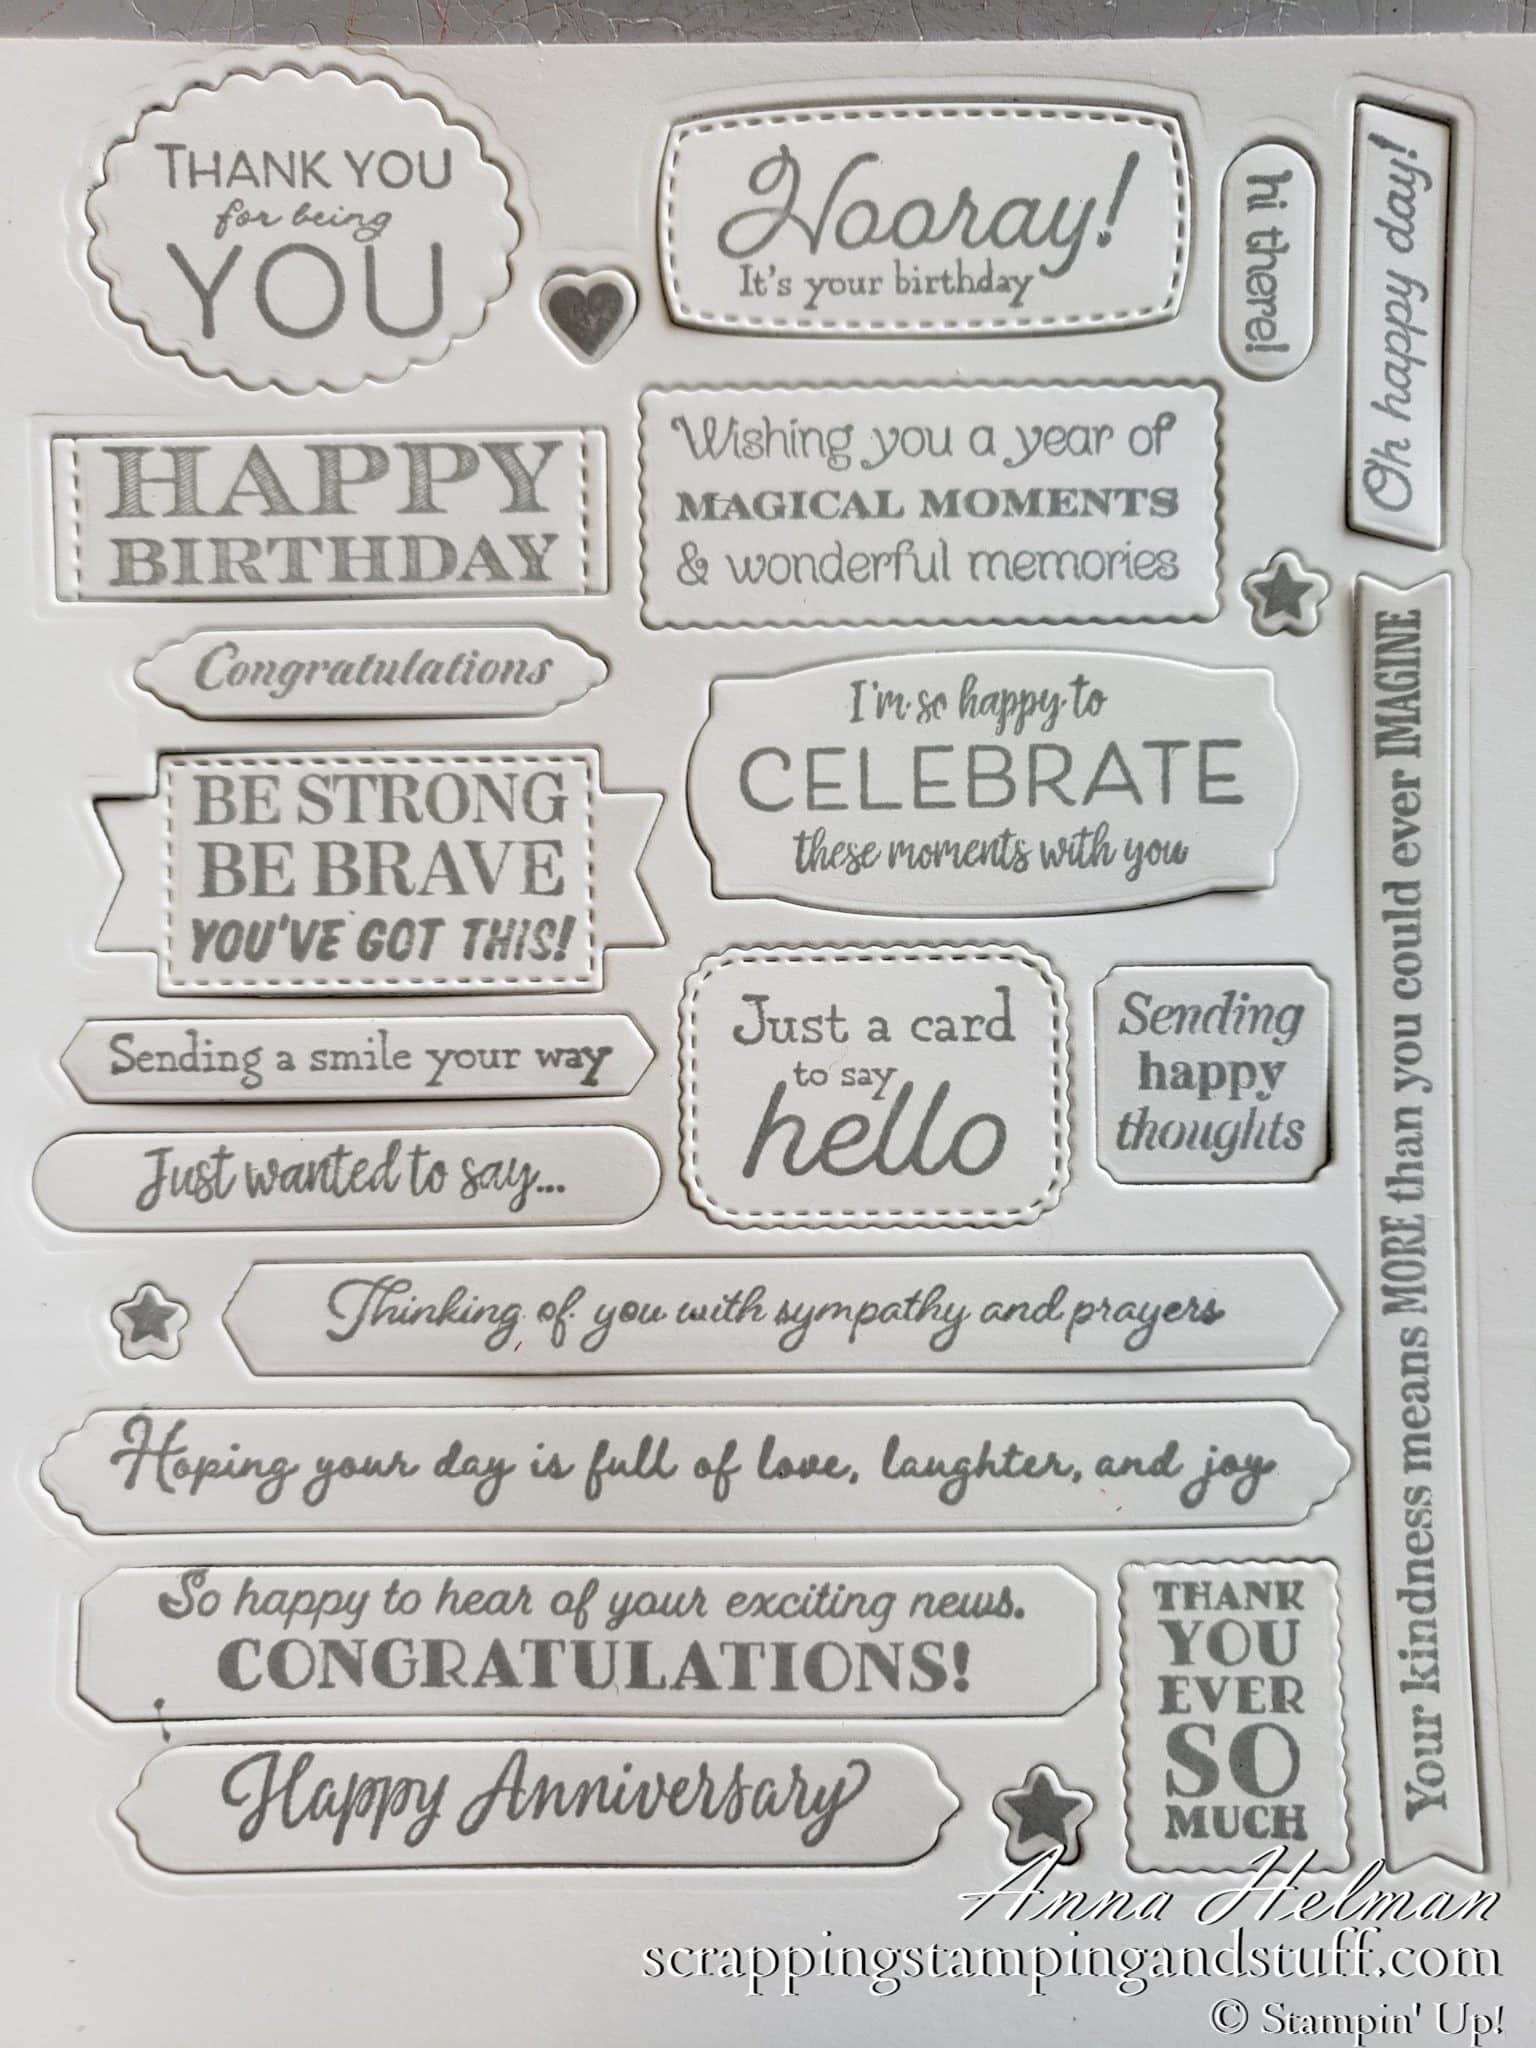 THANK YOU
for being
YOU
Hooray!
It's your birthday
hi there!
Oh happy day!
HAPPY
BIRTHDAY
Wishing you a year of
MAGICAL MOMENTS
& wonderful memories
Congratulations
I'm so happy to
CELEBRATE
these moments with you
BE STRONG
BE BRAVE
YOU'VE GOT THIS!
Just a card
to say
hello
Sending
happy
thoughts
Sending a smile your way
Just wanted to say...
Thinking of you with sympathy and prayers
Hoping your day is full of love, laughter, and joy
So happy to hear of your exciting news.
CONGRATULATIONS!
THANK
YOU
EVER
SO
MUCH
Happy Anniversary
Your kindness means MORE than you could ever IMAGINE
Anna Helman
scrappingstampingandstuff.com
© Stampin' Up!